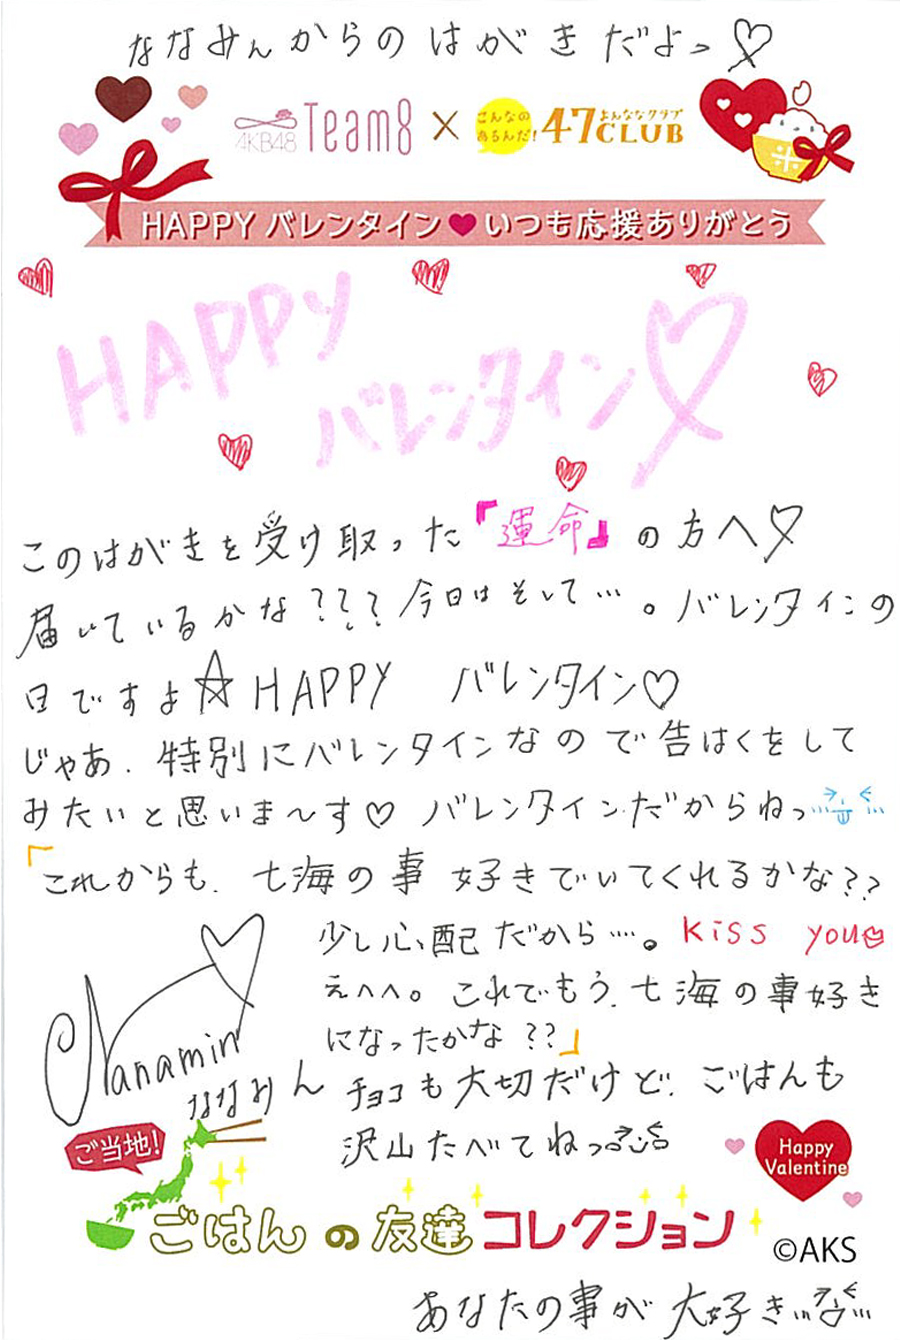 ななみんからのはがきだよっ♡
AKB48 Team8 × こんなの あるんだ! 47CLUB よんななクラブ
米
HAPPY バレンタイン♥いつも応援ありがとう
HAPPY
バレンタイン♡
このはがきを受け取った『運命』の方へ♡
届いているかな???今日はそして…。バレンタインの
日ですよ☆HAPPY バレンタイン♡
じゃあ、特別にバレンタインなので告はくをして
みたいと思いま〜す♡ バレンタインだからねっ
「これからも、七海の事 好きでいてくれるかな??
少し心配だから….。Kiss you♡
えへへ。これでもう、七海の事好き
になったかな??」
Nanamin
ななみん
チョコも大切だけど、ごはんも
沢山たべてねっ
ご当地!
Happy
Valentine
ごはんの友達コレクション
©AKS
あなたの事が大好き